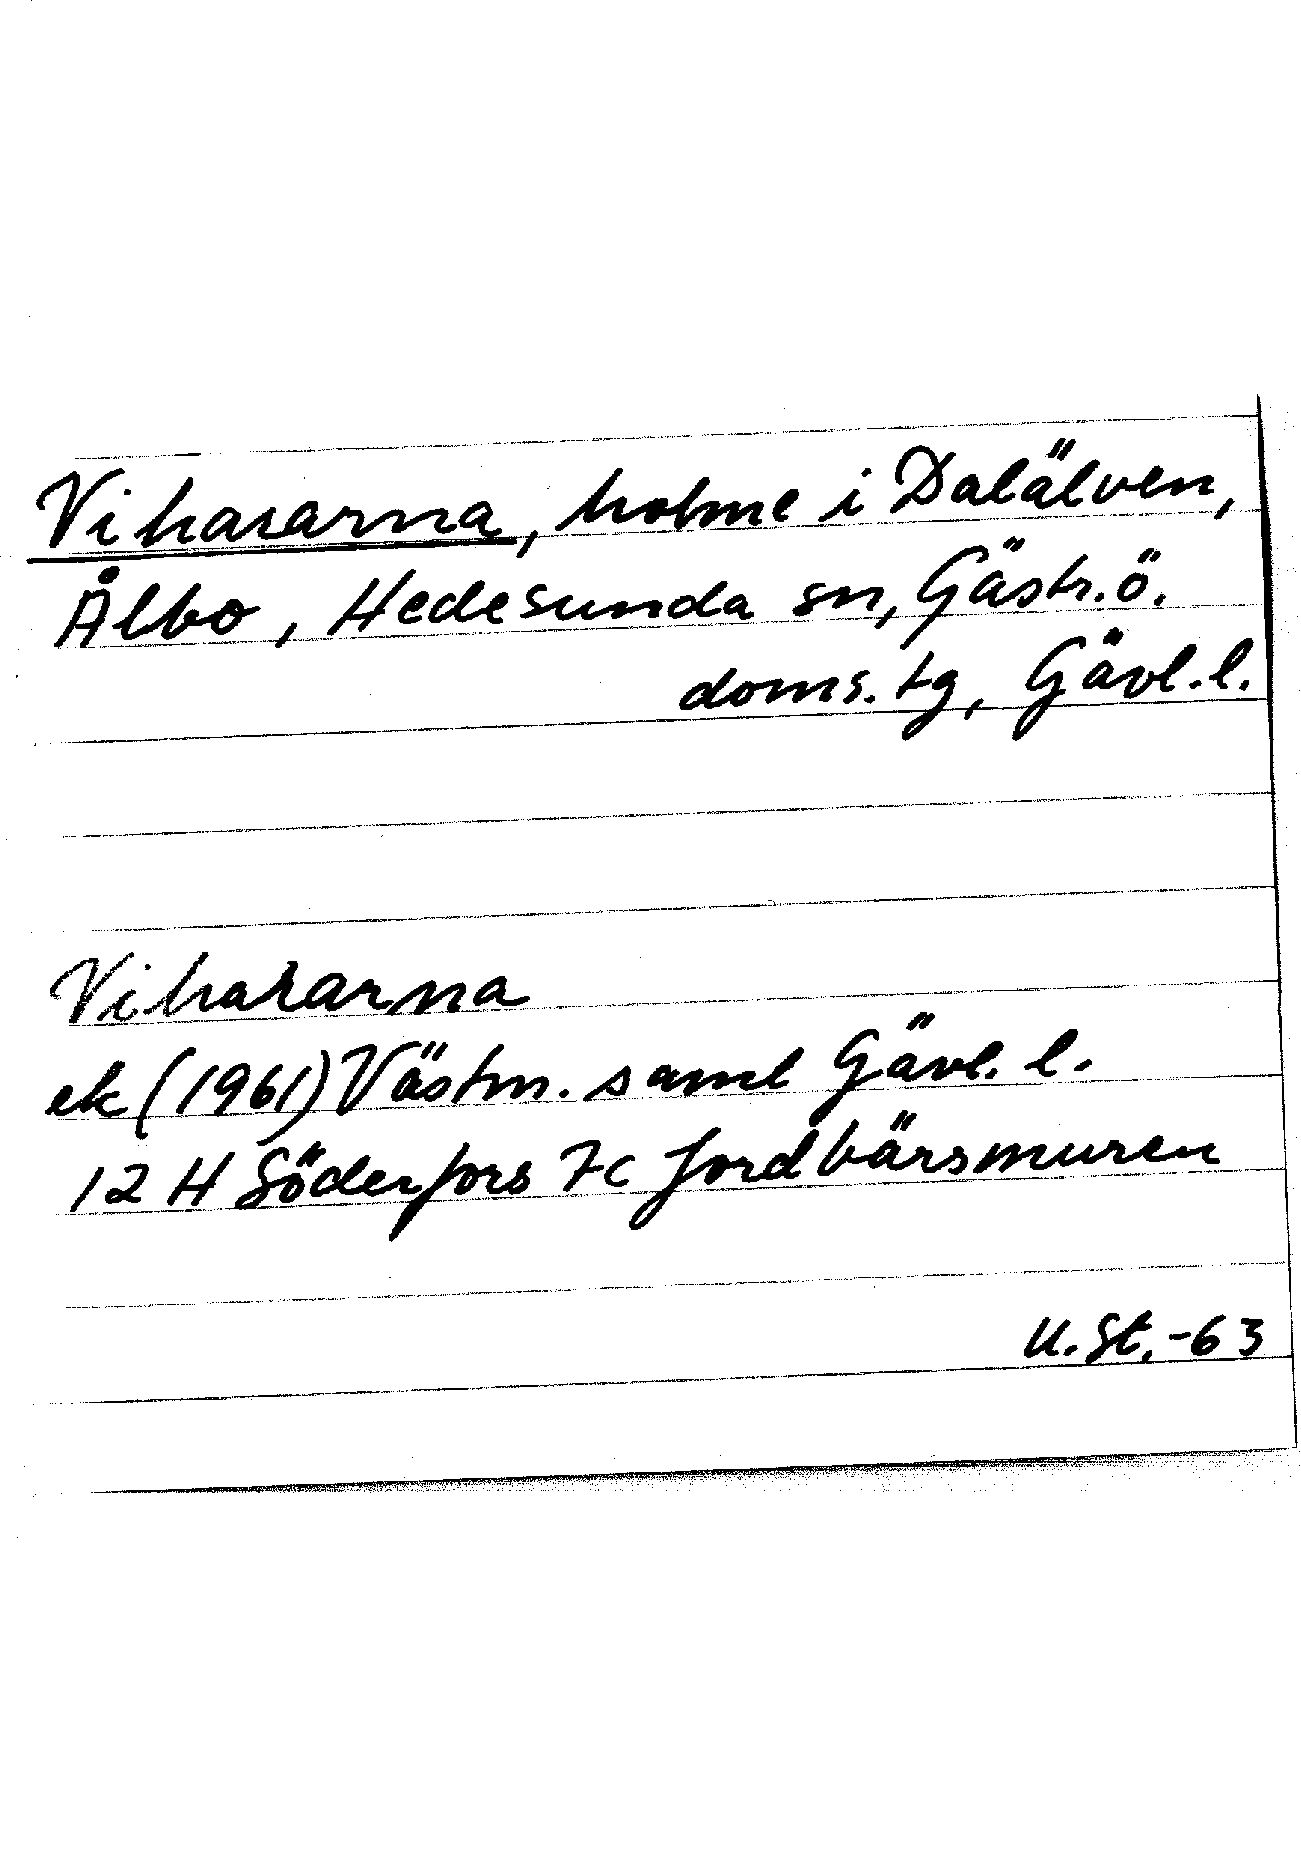 Vihararna, holme i Dalälven,
Ålbo, Hedesunda sn, Gästr. ö.
doms. tg, Gävl. l.
Vihararna
ek (1961) Västm. saml Gävl. l.
12 H Söderfors 7c Jordbärsmuren
U. St. -63